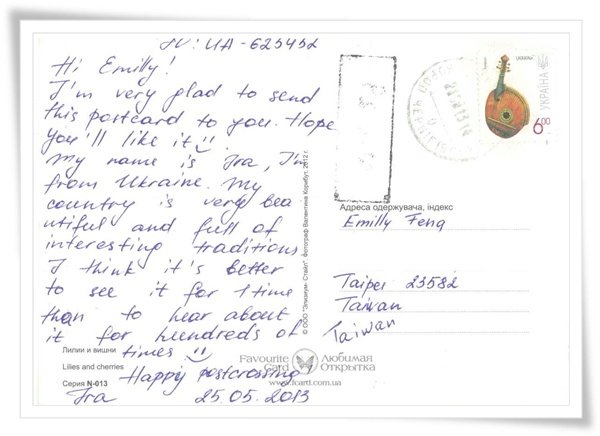 JV: UA-625452
Hi Emilly!
I'm very glad to send
this postcard to you. Hope
you'll like it
My name is Ira, I'm
from Ukraine. My
country is very bea
utiful and full of
interesting traditions
I think it's better
to see it for 1 time
than to hear about
it for hundreds of
times
Happy postcrossing
Ira 25.05.2013
Лилии и вишни
Lilies and cherries
Серия N-013
© ООО "Элизиум- Стайл". Фотограф Валентина Корибут, 2012 г.
УКРАЇНА
6.00
Адреса одержувача, індекс
Emilly Feng
Taipei 23582
Taiwan
Taiwan
Favourite Card Любимая Открытка
www.fcard.com.ua